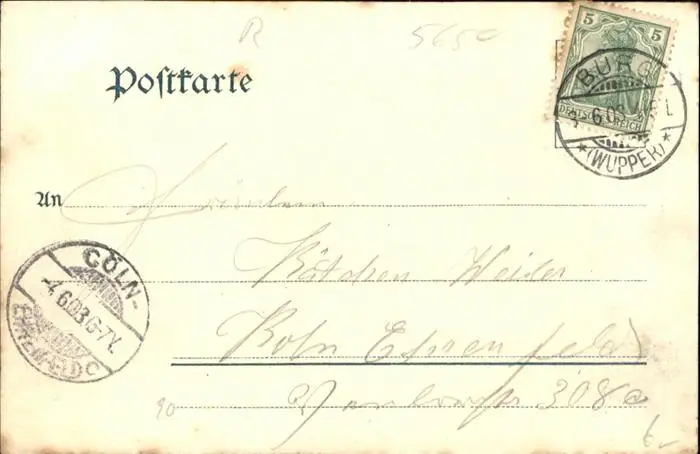 R 565c
5 5
DEUTSCHES REICH
BURG
6.03
*(WUPPER)*
Postkarte
An Fräulein
Käthchen Weiler
Köln Ehrenfeld
308a
CÖLN-
-4.6.03.6-7N.
EHRENFELD C
90
6.-